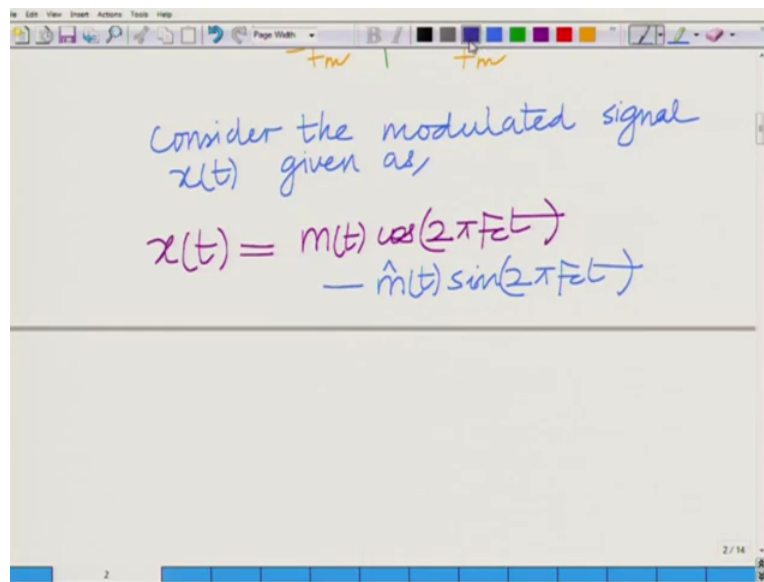 Edit View Insert Actions Tools Help
Page Width
B I
-fm fm
Consider the modulated signal
x(t) given as,
x(t) = m(t) cos(2πFct)
— m̂(t) sin(2πFct)
2 / 14
2